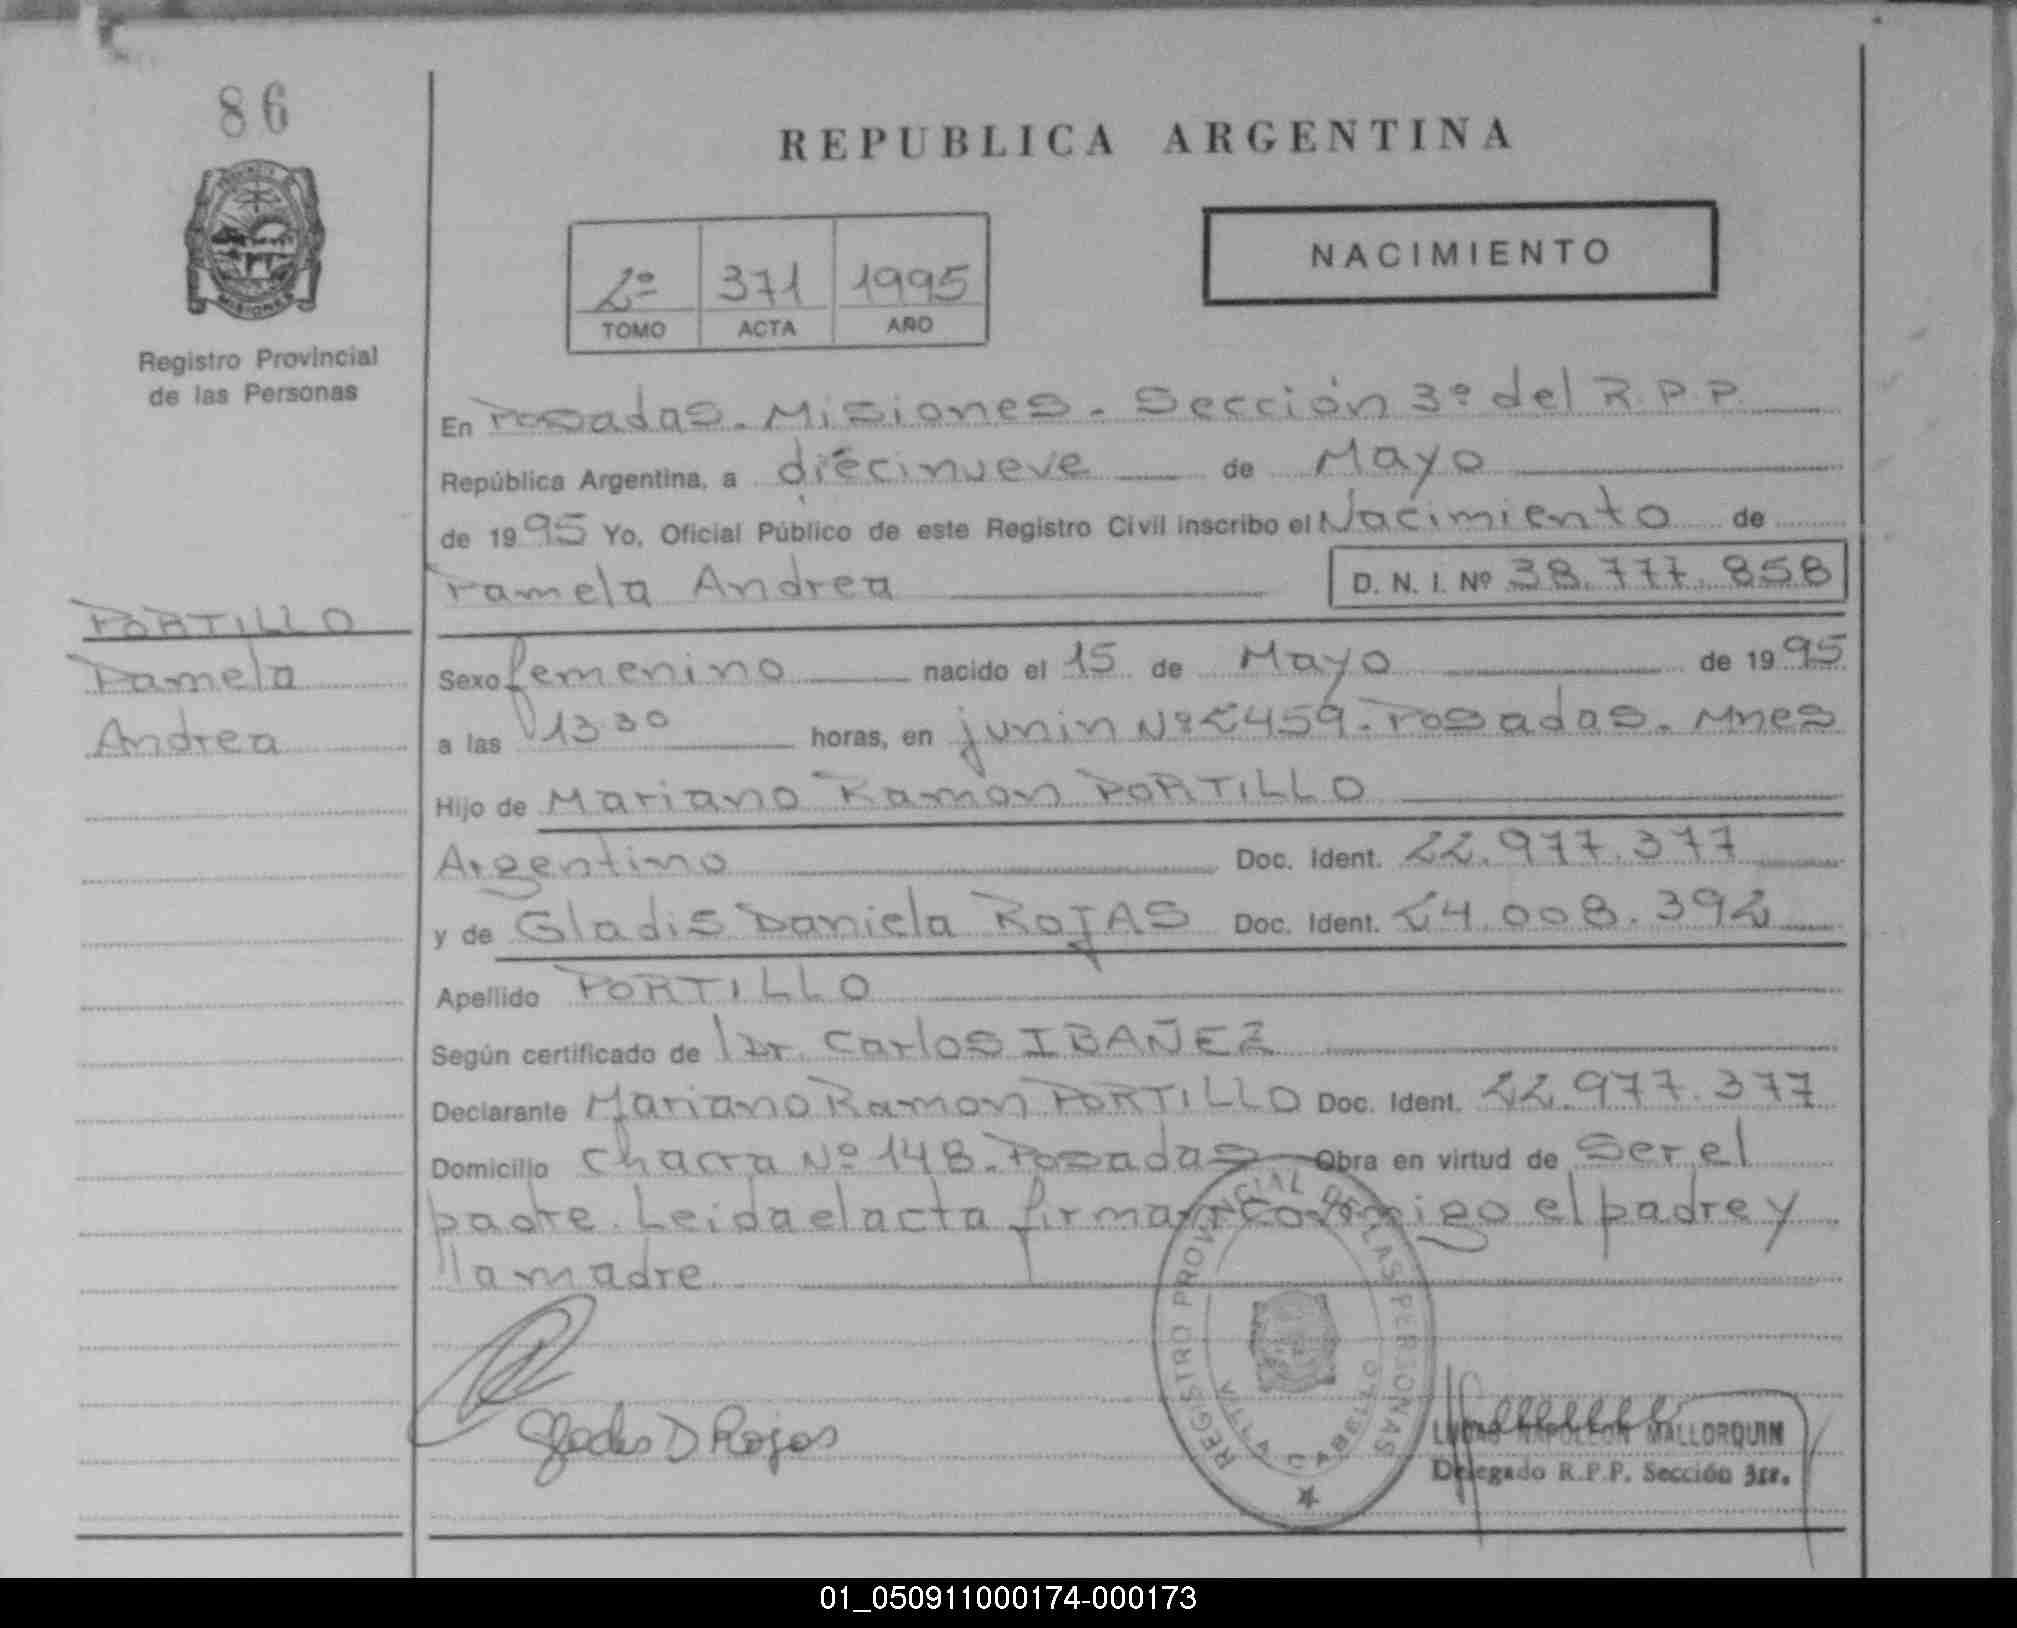 86
REPUBLICA ARGENTINA
NACIMIENTO
2º 371 1995
TOMO ACTA AÑO
MISIONES
Registro Provincial
de las Personas
En Posadas. Misiones. Sección 3º del R.P.P.
República Argentina, a diecinueve de Mayo
de 1995 Yo, Oficial Público de este Registro Civil inscribo el Nacimiento de
Pamela Andrea D. N. I. Nº 38.777.858
PORTILLO
Pamela
Andrea
Sexo femenino nacido el 15 de Mayo de 1995
a las 13 30 horas, en junin Nº 2459. Posadas. Mnes
Hijo de Mariano Ramon PORTILLO
Argentino Doc. Ident. 22.977.377
y de Gladis Daniela ROJAS Doc. Ident. 24.008.392
Apellido PORTILLO
Según certificado de Dr. Carlos IBAÑEZ
Declarante Mariano Ramon PORTILLO Doc. Ident. 22.977.377
Domicilio Chacra Nº 148. Posadas Obra en virtud de Ser el
padre. Leida el acta firman conmigo el padre y
la madre
REGISTRO PROVINCIAL DE LAS PERSONAS
VILLA CABELLO
Gladis D Rojas
LUCAS NAPOLEON MALLORQUIN
Delegado R.P.P. Sección 3ra.
01_050911000174-000173